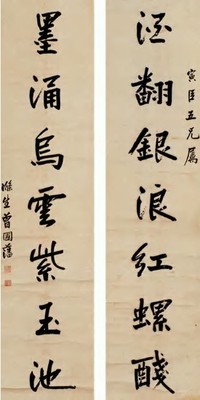 寅臣五兄属
酒翻銀浪红螺醆
墨涌烏雲紫玉池
滌生曾國藩